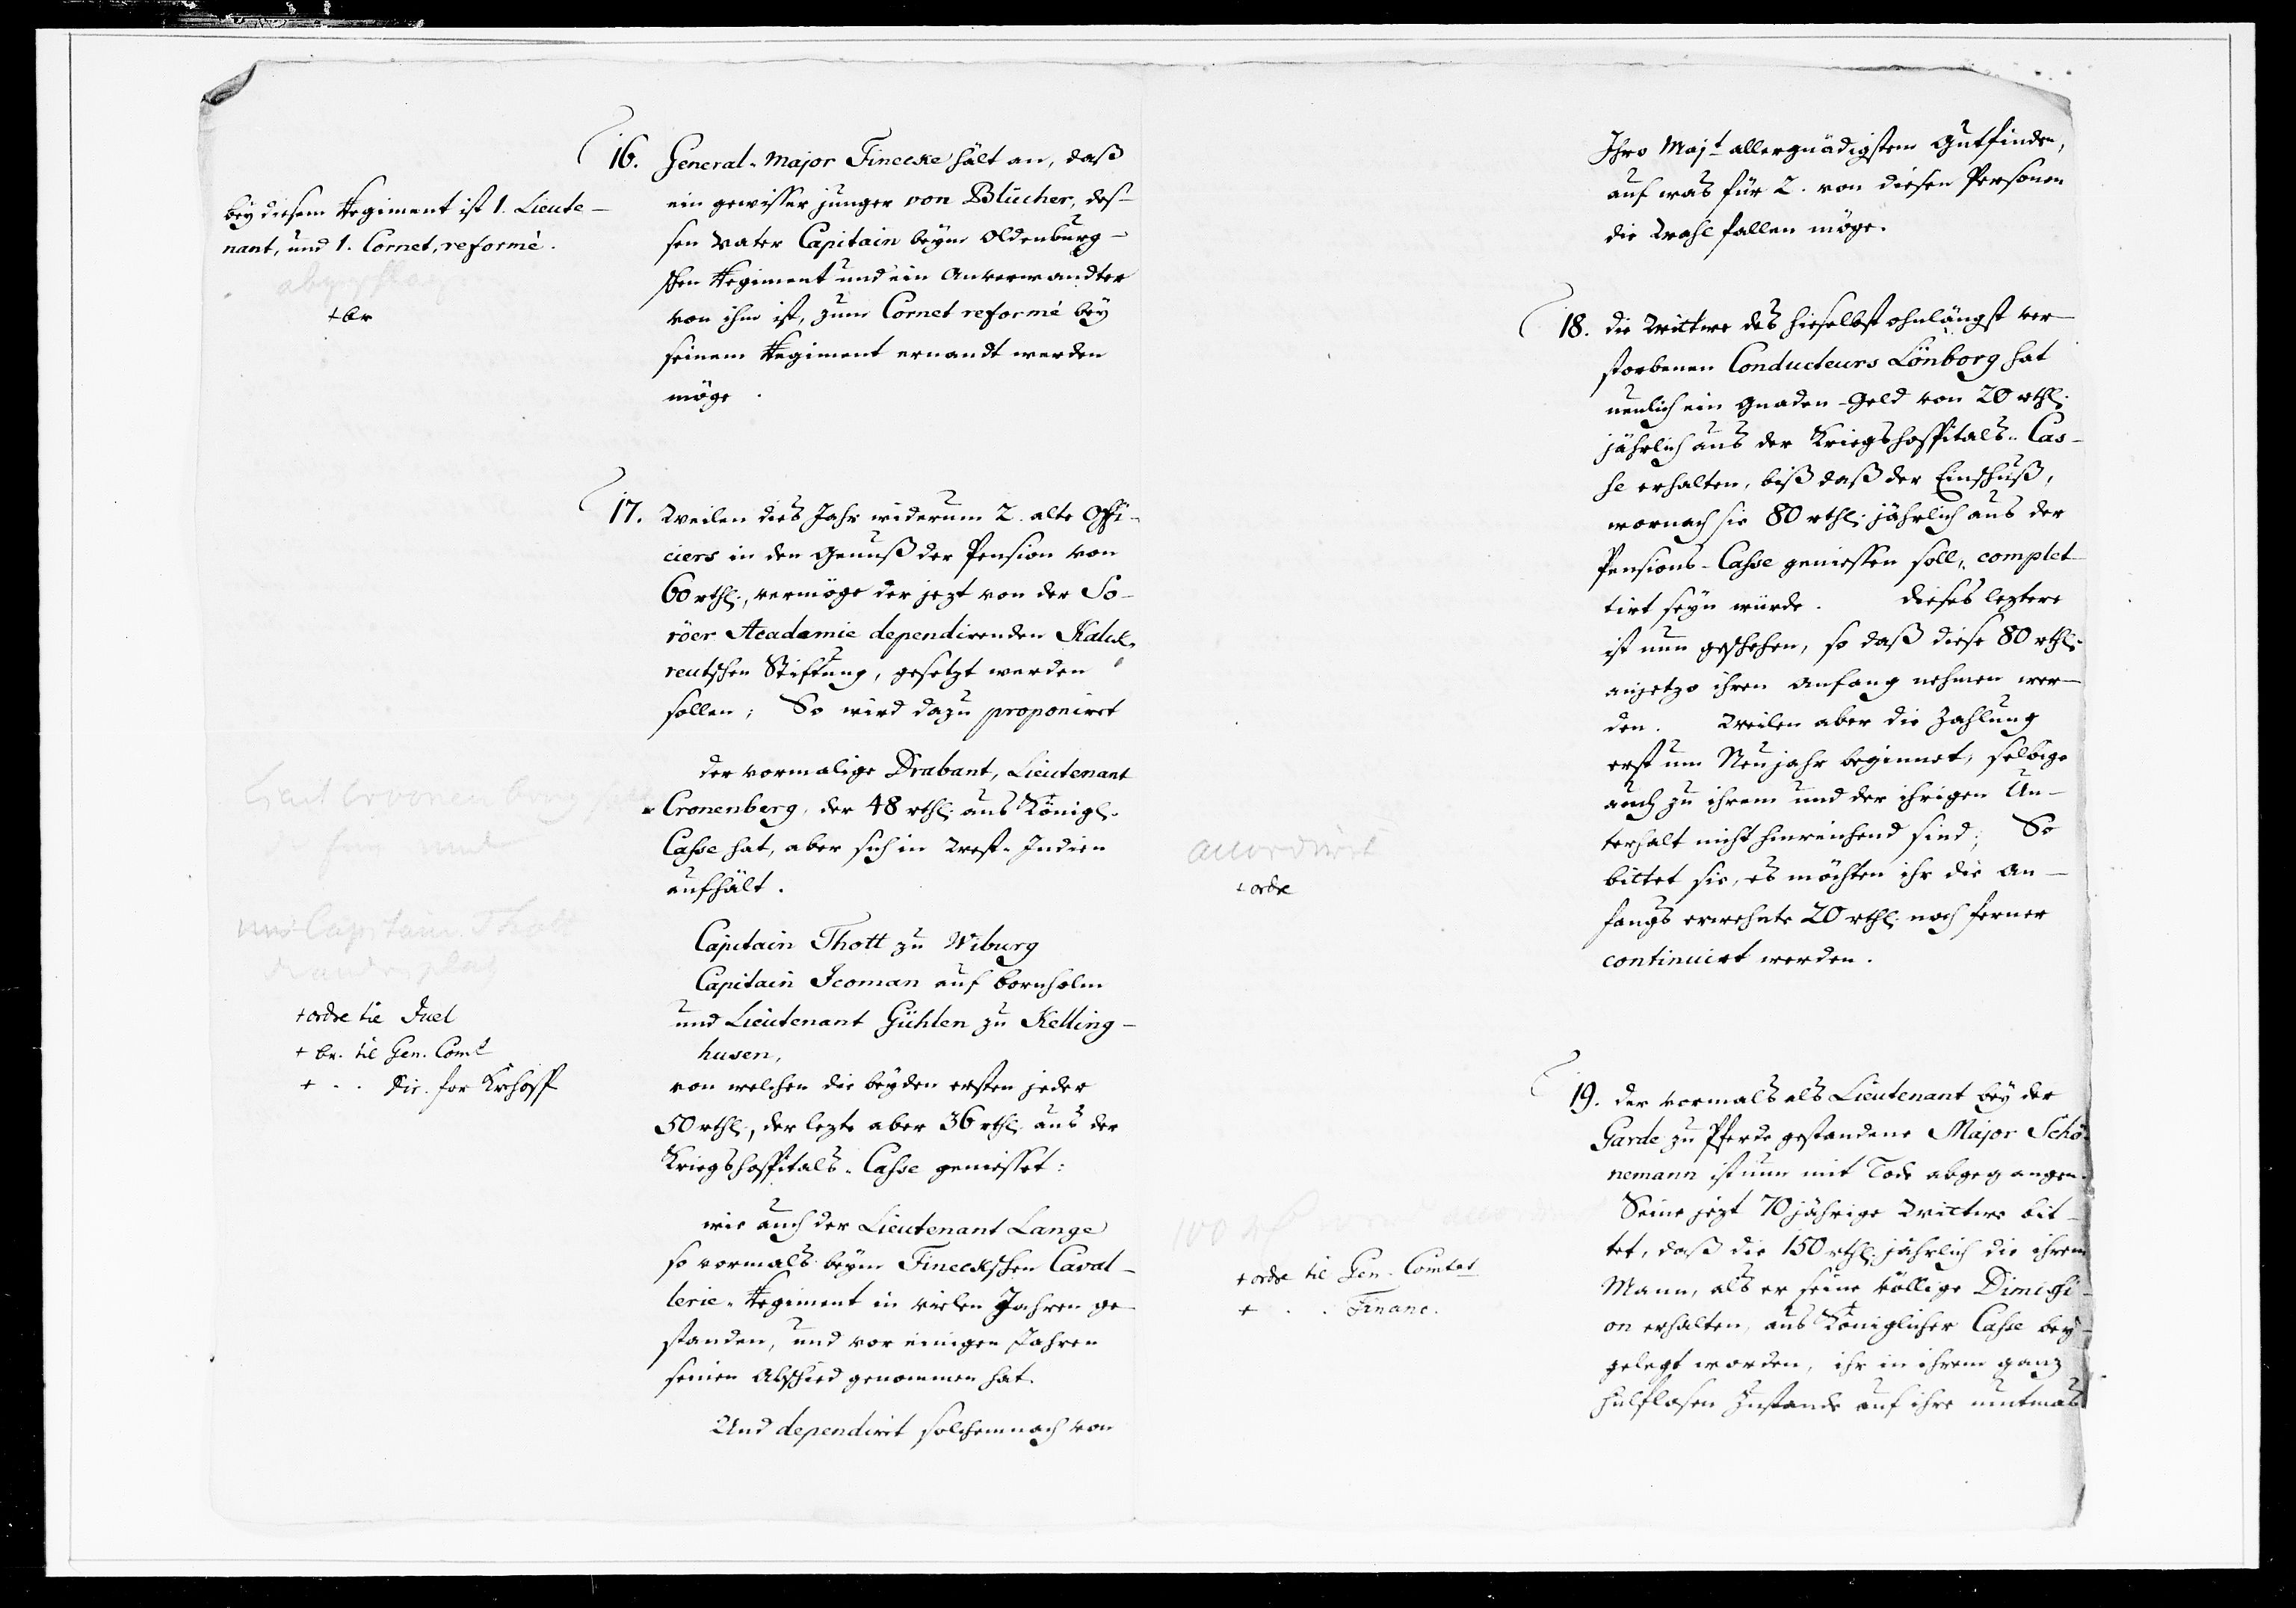 16. General-Major Finecke hält an, daß
ein gewisser junger von Blücher, des-
sen Vater Capitain beym Oldenburg-
schen Regiment und ein Anverwandter
von ihm ist, zum Cornet reformé bey
seinem Regiment ernandt werden
möge.
bey diesem Regiment ist 1. Lieute-
nant, und 1. Cornet, reformé.
abgeschlag
+ br
17. Weilen dies Jahr widerum 2. alte Offi-
ciers in den Genuß der Pension von
60 rthl., vermöge der jezt von der So-
röer Academie dependirenden Kalck-
reutschen Stiftung, gesetzt werden
sollen; So wird dazu proponiret
der vormalige Drabant, Lieutenant
Cronenberg, der 48 rthl. aus Königl.
Casse hat, aber sich in West-Indien
aufhält.
Capitain Thott zu Wiburg
Capitain Icoman auf Bornholm
und Lieutenant Gühlen zu Kelling-
husen,
von welchen die beyden ersten jeder
50 rthl., der lezte aber 36 rthl. aus der
Kriegshospitals-Casse geniesset:
wie auch der Lieutenant Lange
so vormals beym Fineckschen Caval-
lerie-Regiment in vielen Jahren ge-
standen, und vor einigen Jahren
seinen Abschied genommen hat.
Und dependirt solchemnach von
Capitain Thott
+ ordre til Juel
+ br. til Gen. Comt
+ - - Dir. for Krhosp
Ihro Majt allergnädigstem Gutfinden,
auf was für 2. von diesen Personen
die Wahl fallen möge.
18. die Wittwe des hieselbst ohnlängst ver-
storbenen Conducteurs Lönborg hat
neulich ein Gnaden-Geld von 20 rthl.
jährlich aus der Kriegshospitals-Cas-
se erhalten, biß daß der Einschuß,
wornach sie 80 rthl. jährlich aus der
Pensions-Casse geniessen soll, complet-
tirt seyn würde. Dieses leztere
ist nun geschehen, so daß diese 80 rthl.
anjetzo ihren Anfang nehmen wer-
den. Weilen aber die Zahlung
erst um Neujahr beginnet, selbige
auch zu ihrem und der ihrigen Un-
terhalt nicht hinreichend sind; So
bittet sie, es möchten ihr die An-
fangs erwehnte 20 rthl. noch ferner
continuiret werden.
accordirt
+ ordre
19. der vormals als Lieutenant bey der
Garde zu Pferde gestandene Major Schö-
nemann ist nun mit Tode abgegangen.
Seine jezt 70 jährige Wittwe bit-
tet, daß die 150 rthl. jährlich die ihrem
Mann, als er seine völlige Dimissi-
on erhalten, aus Königlicher Casse bey-
gelegt worden, ihr in ihrem ganz
hülflosen Zustande auf ihre mutmas
100
+ ordre til Gen. Comtet
+ - - Financ.